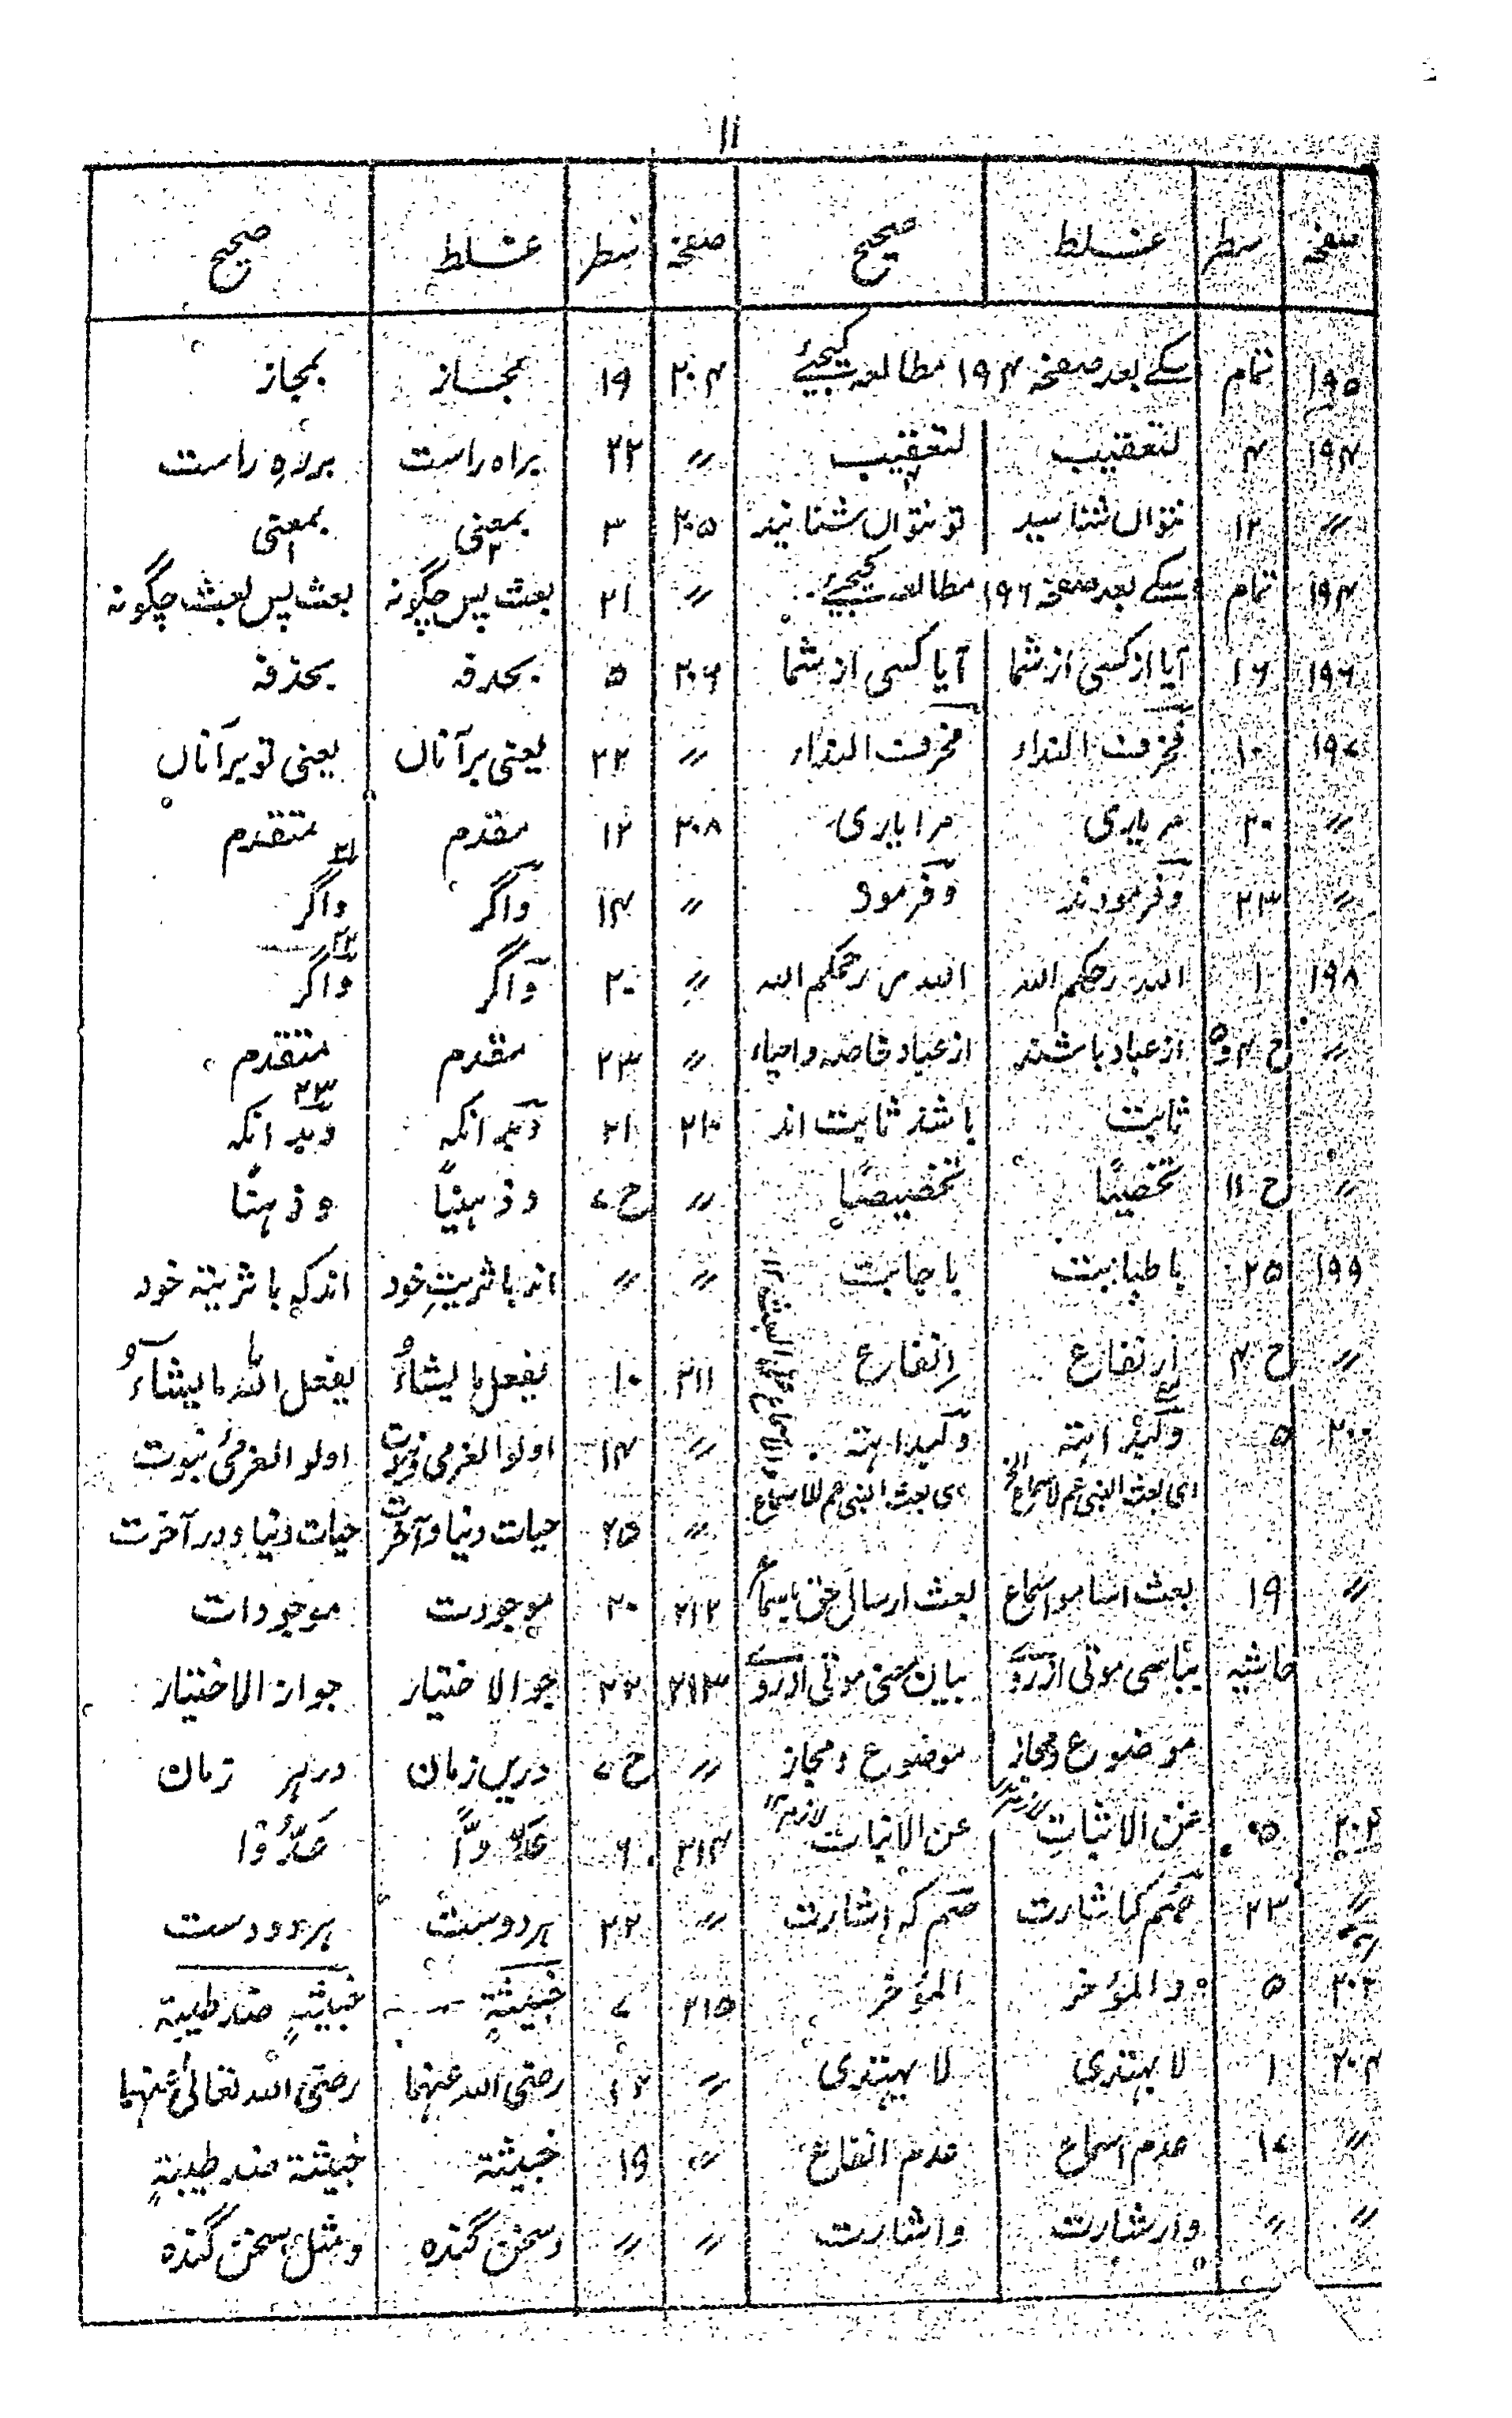 ۱۱
صفحہ سطر غلط صحیح صفحہ سطر غلط صحیح
۱۹۵ تمام سکے بعد صفحہ ۱۹۴ مطالعہ کیجئے ۲۰۴ ۱۹ بجساز بمجاز
۱۹۴ ۴ لتعقیب لتعقیب 〃 ۲۲ براہ راست برراہِ راست
〃 ۱۲ نتواں شناسید تو نتواں شنانید ۲۰۵ ۳ بمعنی بمعنی
۱۹۴ تمام سکے بعد صفحہ ۱۹۶ مطالعہ کیجئے 〃 ۲۱ بعث پس چگونہ بعث پس لعبث چگونہ
۱۹۶ ۱۶ آیا از کسی از شما آیا کسی از شما ۲۰۶ ۵ بحدقہ بحذفہ
۱۹۷ ۱۰ فخرفت النداء فخرفت النداء 〃 ۲۲ یعنی برآناں یعنی تو برآناں
〃 ۲۰ مر یاری مرا یاری ۲۰۸ ۱۲ مقدم متقدم
〃 ۲۳ وفرمودند وفرمود 〃 ۱۴ واگر واگر
۱۹۸ ۱ اللہ رحمکم اللہ اللہ من رحمکم اللہ 〃 ۲۰ واگر واگر
〃 ح ۴ و۵ از عباد باشند از عباد خاصہ واحیاء 〃 ۲۳ مقدم متقدم
ثابت باشند ثابت اند ۲۱۰ ۲۱ وبید انکہ وبید انکہ
〃 ح ۱۱ تخصیًا تخصیصًا 〃 ح ۷ وذہنیاً وذہنًا
۱۹۹ ۲۵ باطبابت باجابت 〃 〃 اند باثریت خود اندکہ باثریتہ خود
〃 ح ۴ ارتفاع انفارع ۲۱۱ ۱۰ یفعل ما یشاءُ یفعل اللہ ما یشاءُ
۲۰۰ ۵ وکیدٌ ایتہ وکیدایتہ 〃 ۱۴ اولو العزمی اولو العزمی نبوت
ای بعث النبی عم لاسماع ای بعث النبی عم للاسماع 〃 ۲۵ حیات دنیا وآخرت حیات دنیا ودر آخرت
〃 ۱۹ بعث اسامو اسماع بعث ارسال حق باسماع ۲۱۲ ۲۰ موجودت موجودات
حاشیہ موتی از رو بیان موتی از رو ۲۱۳ ۲۲ جوالاختیار جواز الاختیار
موضوع ومجاز موضوع ومجاز 〃 ح ۷ دریں زمان درہر زمان
۲۰۲ ۵ عن الاثبات عن الاثبات ۲۱۴ ۶ عَدُوًّا عَدُوًّا
〃 ۲۳ صم کما شارت صم کہ اشارت 〃 ۲۲ ہر دوست ہر دو دست
۲۰۳ ۵ والمؤخر المؤخر ۲۱۵ ۷ خبیثۃٍ خبیثۃٍ ضد طیبۃ
۲۰۴ ۱ لا یہتدی لا یہتدی 〃 ۱۲ رضی اللہ عنہما رضی اللہ تعالیٰ عنہما
〃 ۱۷ عدم اسماع عدم انفاع 〃 ۱۹ خبیثۃ خبیثۃ ضد طیبۃٍ
〃 〃 وارشارت واشارت 〃 〃 وسخن گندہ ومثل سخن گندہ